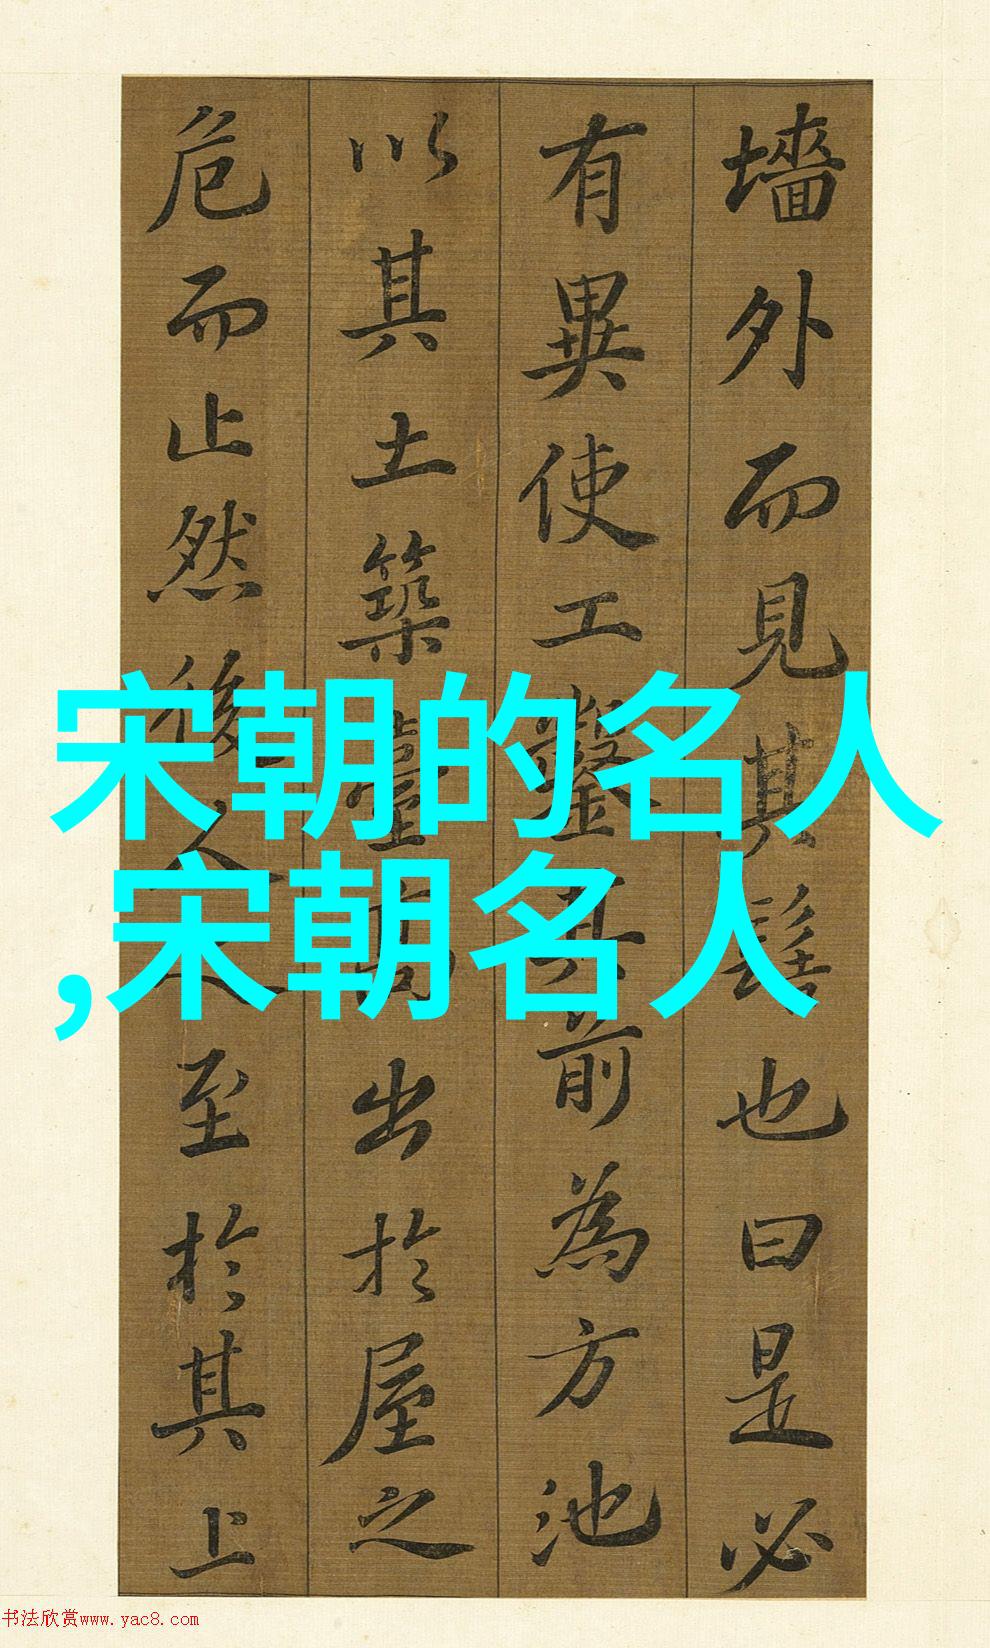 墻外而見其髻也曰是必
有異使工鑿其前為方池
以其土築臺高出於屋之
危而止然後人人至於其上
宋朝的名人
,宋朝名人
书法欣赏www.yac8.com